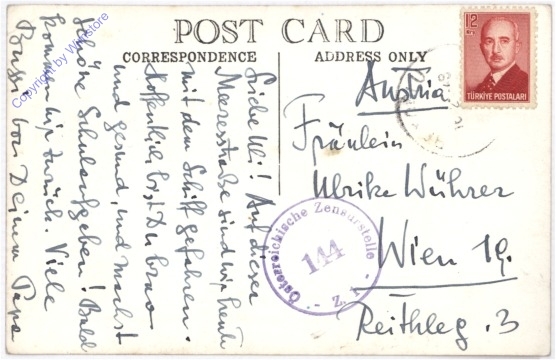 POST CARD
CORRESPONDENCE
ADDRESS ONLY
Liebe Uli! Auf dieser
Meeresstraße sind wir heute
mit dem Schiff gefahren.
Hoffentlich bist Du brav
und gesund, und machst
schöne Schulaufgaben! Bald
komme ich zurück. Viele
Bussi von Deinem Papa
Austria
Fräulein
Ulrike Wührer
Wien 19.
Reithleg. 3
12
TÜRKİYE POSTALARI
Österreichische Zensurstelle
144
- Z. 1 -
Copyright by Wiknstore